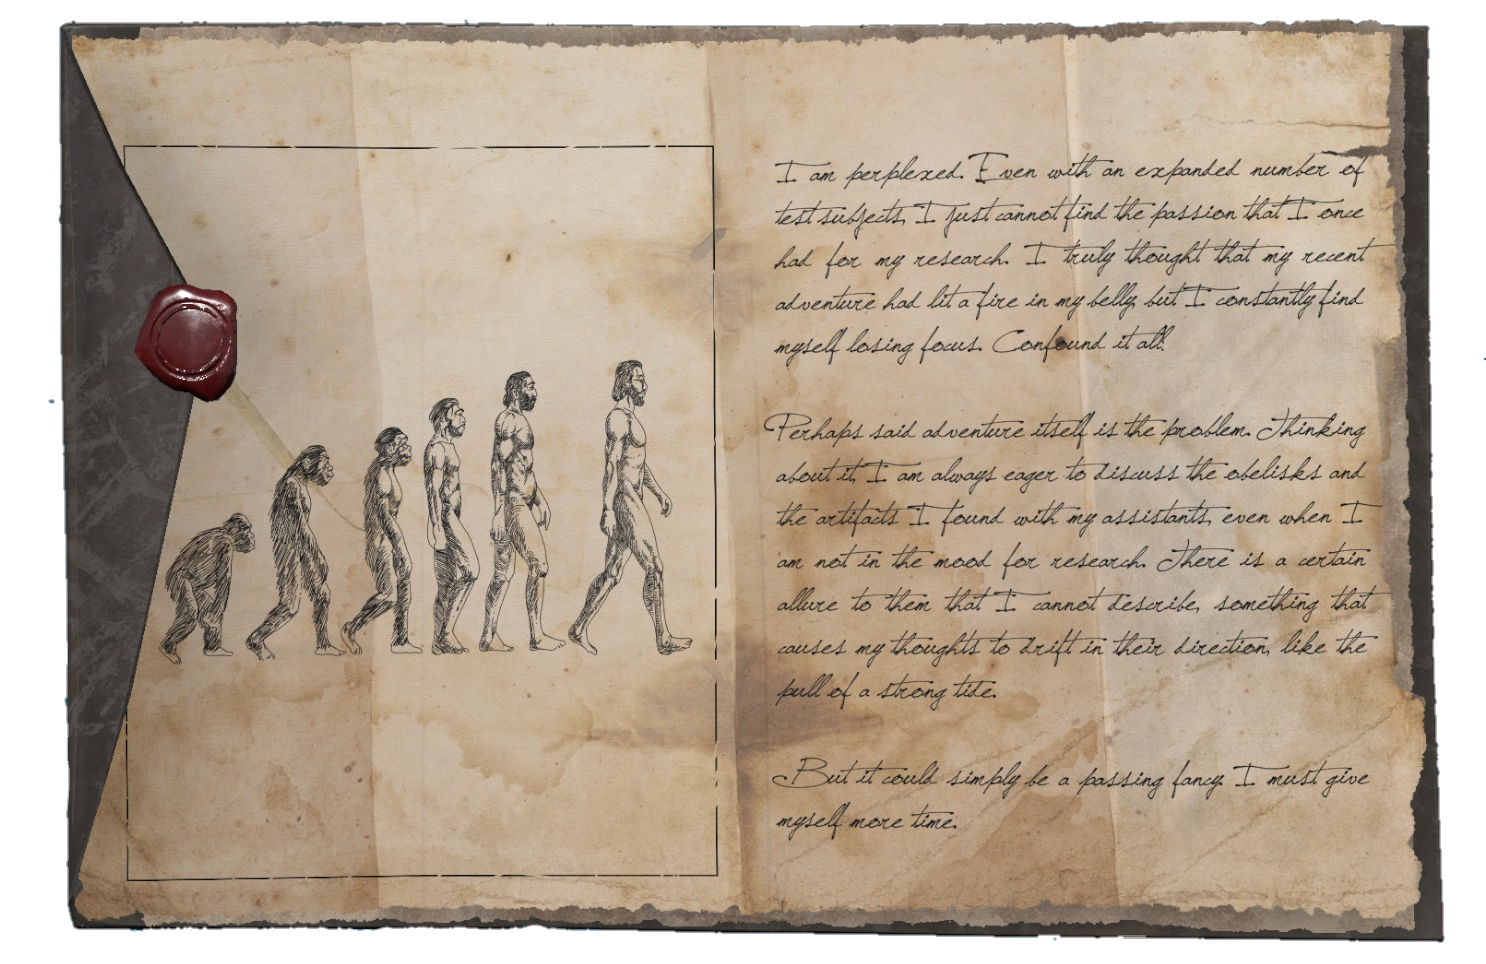 I am perplexed. Even with an expanded number of
test subjects, I just cannot find the passion that I once
had for my research. I truly thought that my recent
adventure had lit a fire in my belly, but I constantly find
myself losing focus. Confound it all!
Perhaps said adventure itself is the problem. Thinking
about it, I am always eager to discuss the obelisks and
the artifacts I found with my assistants, even when I
am not in the mood for research. There is a certain
allure to them that I cannot describe, something that
causes my thoughts to drift in their direction, like the
pull of a strong tide.
But it could simply be a passing fancy. I must give
myself more time.